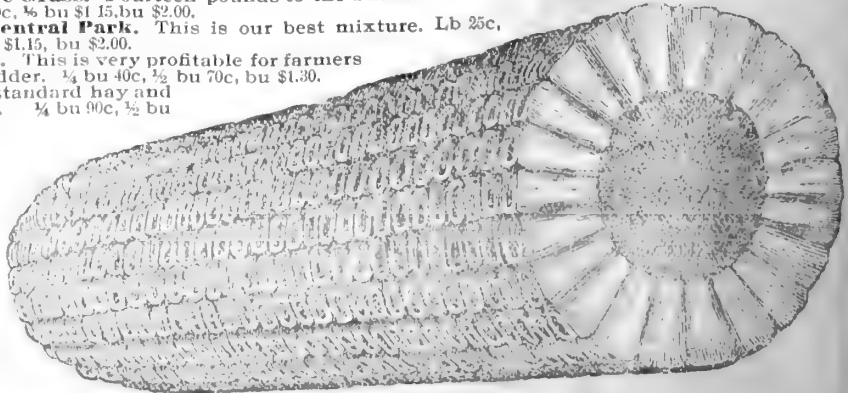 0c, ½ bu $1 15, bu $2.00.
entral Park. This is our best mixture. Lb 25c,
$1.15, bu $2.00.
. This is very profitable for farmers
dder. ¼ bu 40c, ½ bu 70c, bu $1.30.
standard hay and
¼ bu 90c, ½ bu